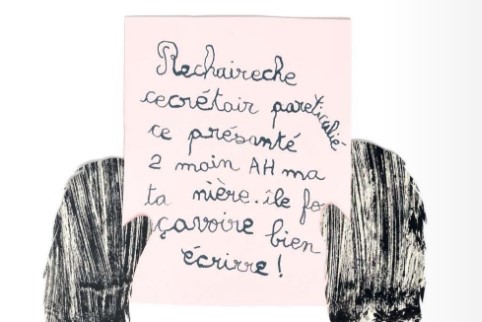 Rechaireche
cecrétair pareticalié
ce présanté
2 main AH ma
ta nière. île fo
çavoire bien
écrirre!